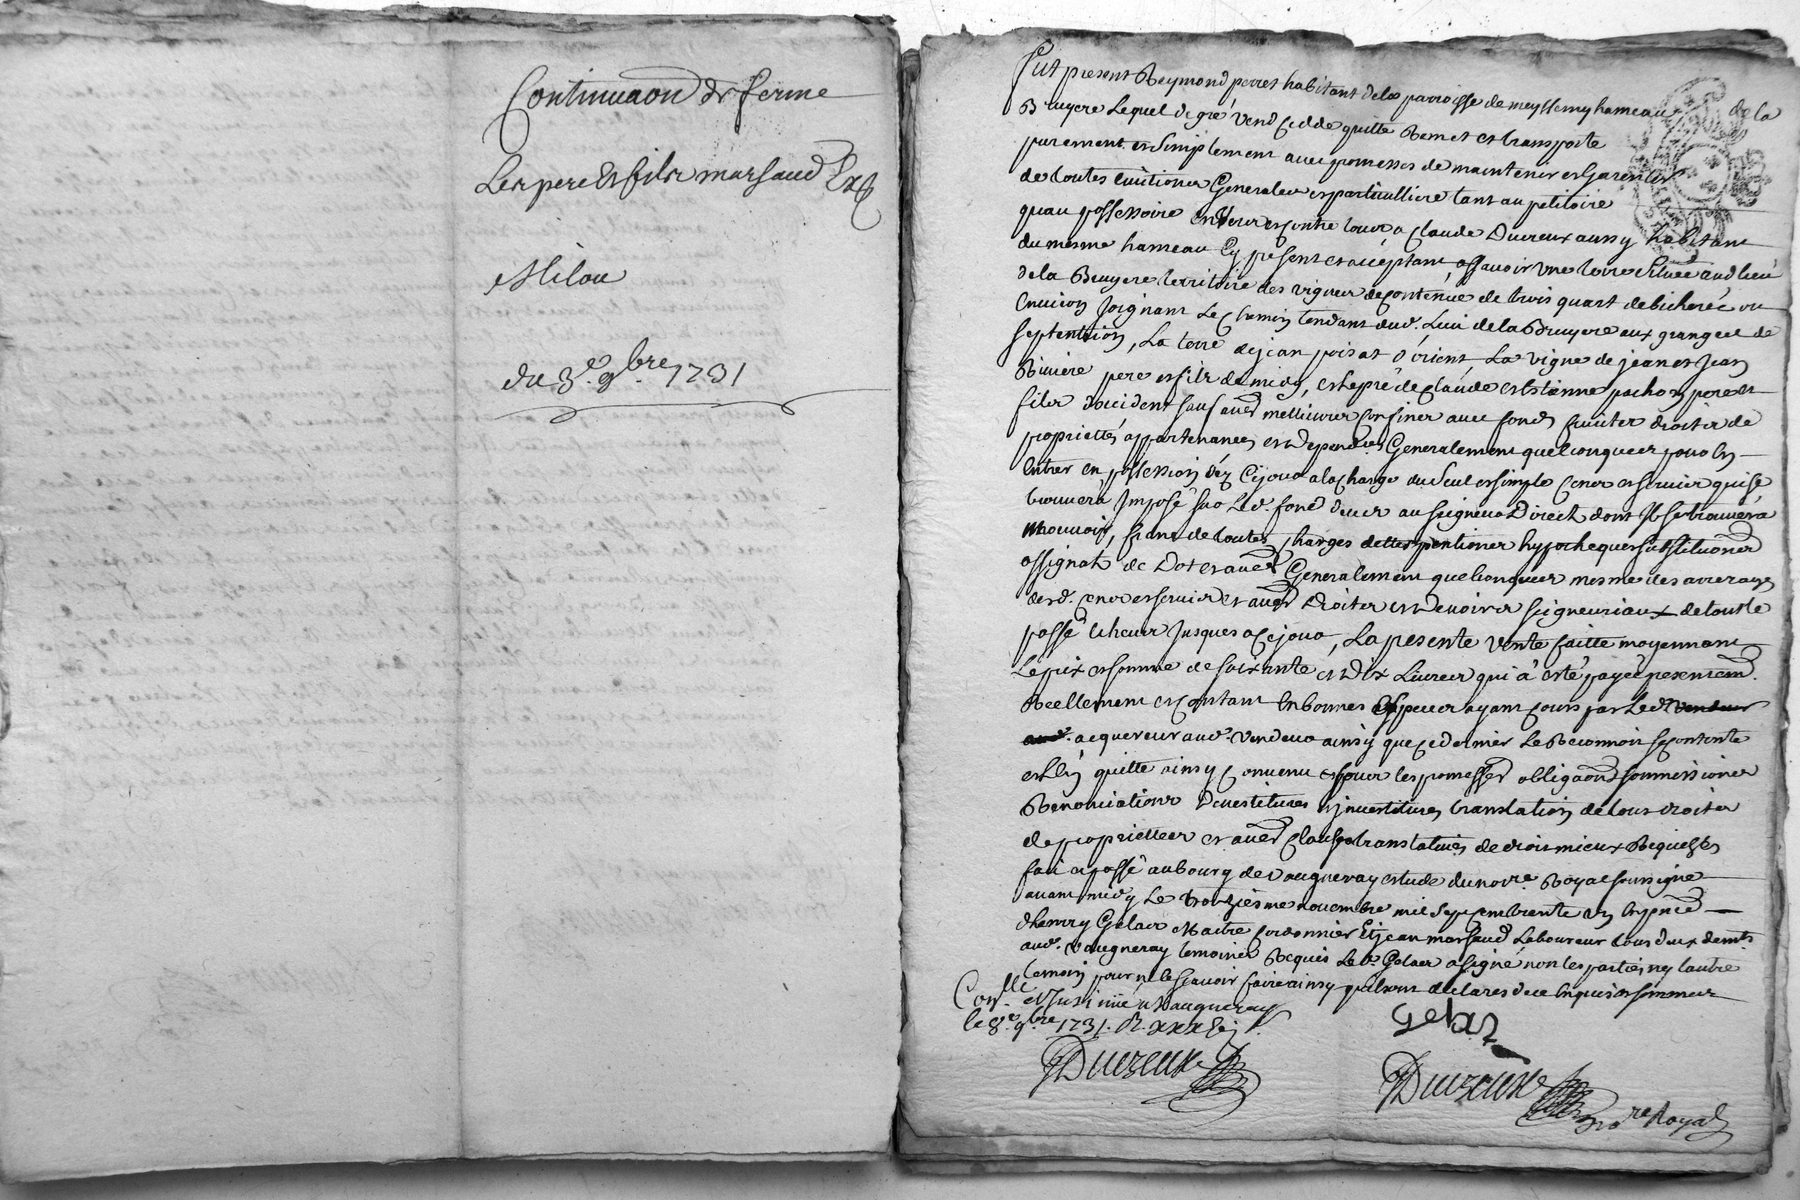 Continuaon de ferme
Les pere et fils marsaud
Milou
du 3e 9bre 1731
Fut present Reymond perret habitant de la parroisse de meyssemy hameau de la
Bruyere Lequel de gré vend cedde quitte Remet et transporte
purement et simplement avec promesses de maintenir et Garentir
de toutes Evitions Generales et particulliere tant au petitoire
quau possessoire envers et contre tous a Claude Ducreux aussy habitant
du mesme hameau Cy présent et acceptant, assavoir une terre scituée aud lieu
de la Bruyere territoire des vignes de contenüe de trois quart de bicherée ou
Environ Joignant Le chemin tendant dud. Lieu de la Bruyere aux granges de
septention, La terre de jean poisat d'orient, La vigne de jean et Jean
Riviere pere et fils de midy, et le pré de Claude et Estienne pachon pere et
fils doccident sauf aues meillieures confines avec fonds fruites droits de
proprietés appartenances et Dependces Generalement quelconques pour en
Entrer en possession déz Cejour a la charge du seul et simple cens et servis qui se
trouvera Imposé sur Led. fond deu au seigneur Direct dont Il se trouvera
Mouvoir, franc de toutes charges dettes pentiones hypotheques substituons
assignat de Dot et aues Generalement quelconques mesme des arrerages
desd. cens et servis et aues Droites et Devoires seigneuriaux de tout le
passé Echeus Jusques a Cejour, La presente vente faitte moyennant
Le prix et somme de soixante et Dix Livres qui à esté payée presentem.
Reellement et contant En bonnes Especes ayant cours par Led
acquereur aud. vendeur ainsy que ce dernier Le Reconnoit se contente
et L'en quitte ainsy convenu et pour les promesses obligaons soummissiones
Renonciations Devestitures et jnvestitures translation de tous droites
de proprietées et aues clauses translatives de droit mieux Requises
fait et passé au bourg de vaugneray estude du nore. Royal soussigne
avant midy Le troiziesme novembre mil sept cent trente un En pnce
dhenry Gelas Maitre cordonnier Et jean marsaud Laboureur tous deux demts
aud. vaugneray temoines Requis Led. Gelas a signé non les parties ny lautre
temoin pour ne le scavoir faire ainsy quils ont declarés de ce Enquis et sommes
Conllé et Insinué a Vaugneray
le 8e 9bre 1731. R.
Gelas
Ducreux
Ducreux
nore Royal